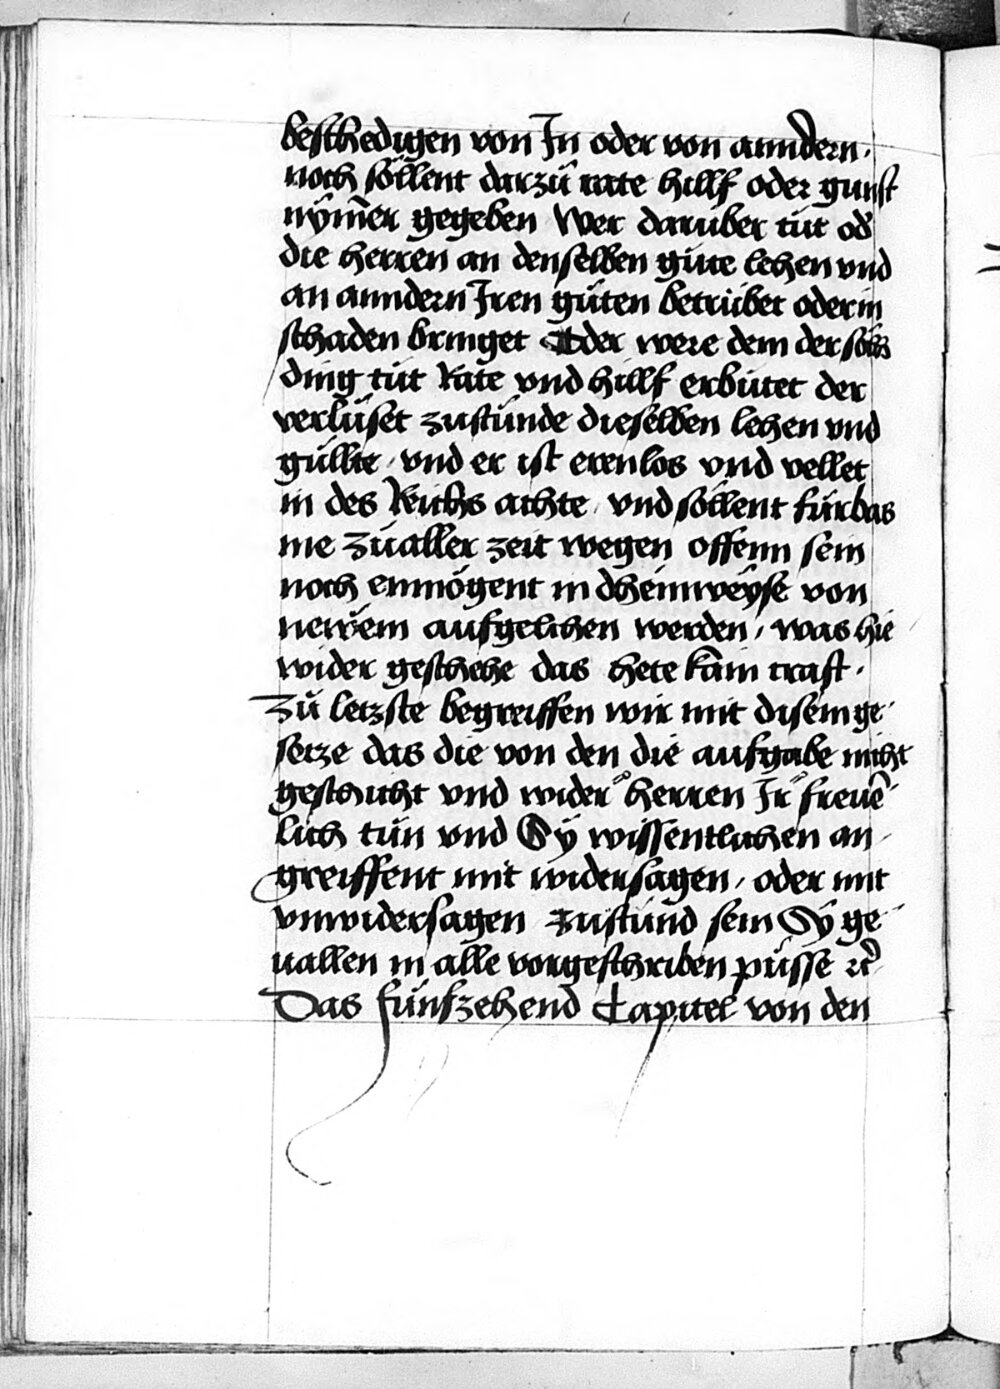 beschedigen von In oder von anndern ·
noch söllent darzů rate hillf oder gunst
nÿm̄er gegeben Wer darüber tůt od̉
die herren an denselben gůte lehen vnd
an anndern Iren gůten betrübet oder in
schaden bringet Oder were dem der sölhs
ding tůt Rate vnd hillf erbütet der
verlüset zustunde dieselben lehen vnd
güllte · vnd er ist erenlos vnd vellet
in des Reichs achte / vnd söllent fürbas
me zů aller zeit wegen offenn sein
noch enmögent in dheinweÿse von
newem aufgelihen werden / was hie
wider geschehe das hete kain craft ·
Zů letzste begreiffen wir mit disem ge-
setze das die von den die aufgabe nicht
geschicht vnd wider herren Ir freuē-
lich tůn vnd Sÿ wissentlichen an-
greiffent mit widersagen / oder mit
vnwidersagen zustund sein Sÿ ge-
uallen in alle vorgeschriben půsse ꝛc̉
Das fünfzehend Capitel von den